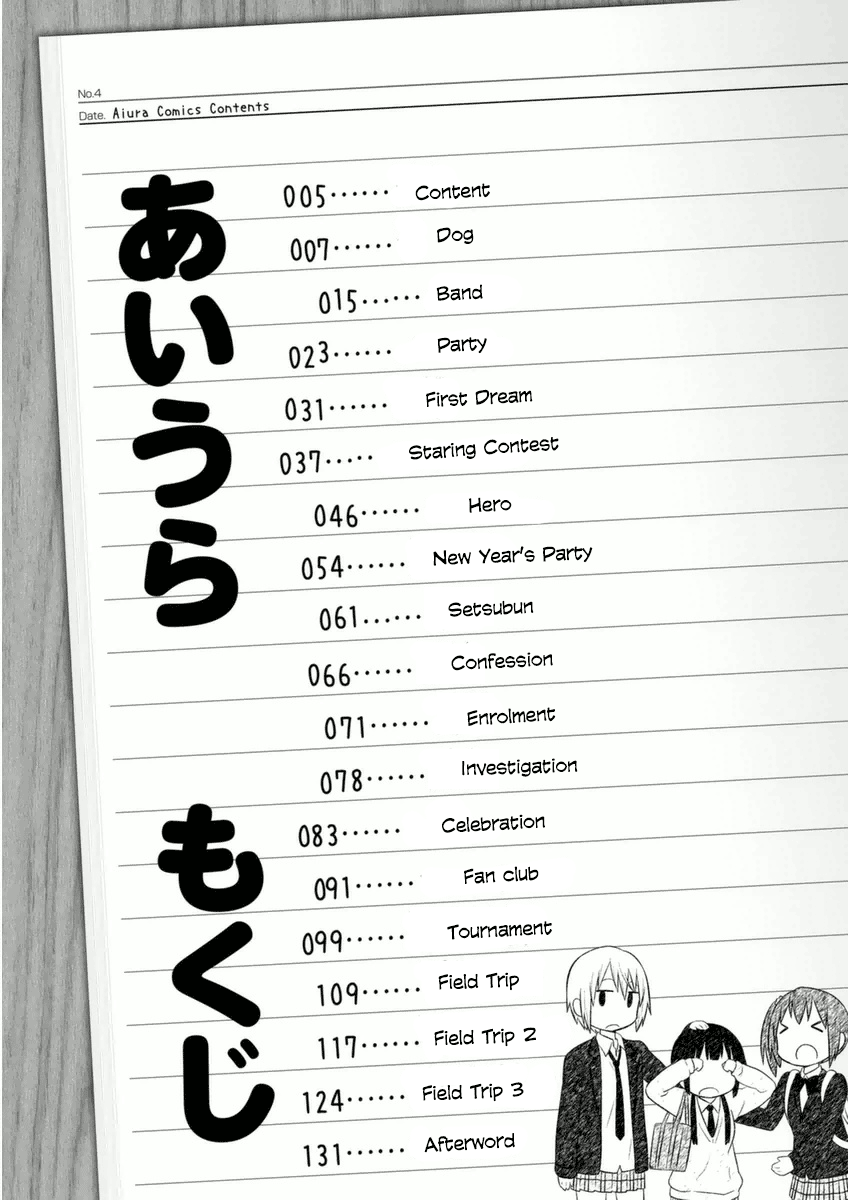 No.4
Date. Aiura Comics Contents
あいうら
もくじ
005······ Content
007······ Dog
015······ Band
023······ Party
031······ First Dream
037····· Staring Contest
046······ Hero
054······ New Year's Party
061...... Setsubun
066······ Confession
071······ Enrolment
078······ Investigation
083······ Celebration
091······ Fan club
099······ Tournament
109······ Field Trip
117······ Field Trip 2
124······ Field Trip 3
131······ Afterword